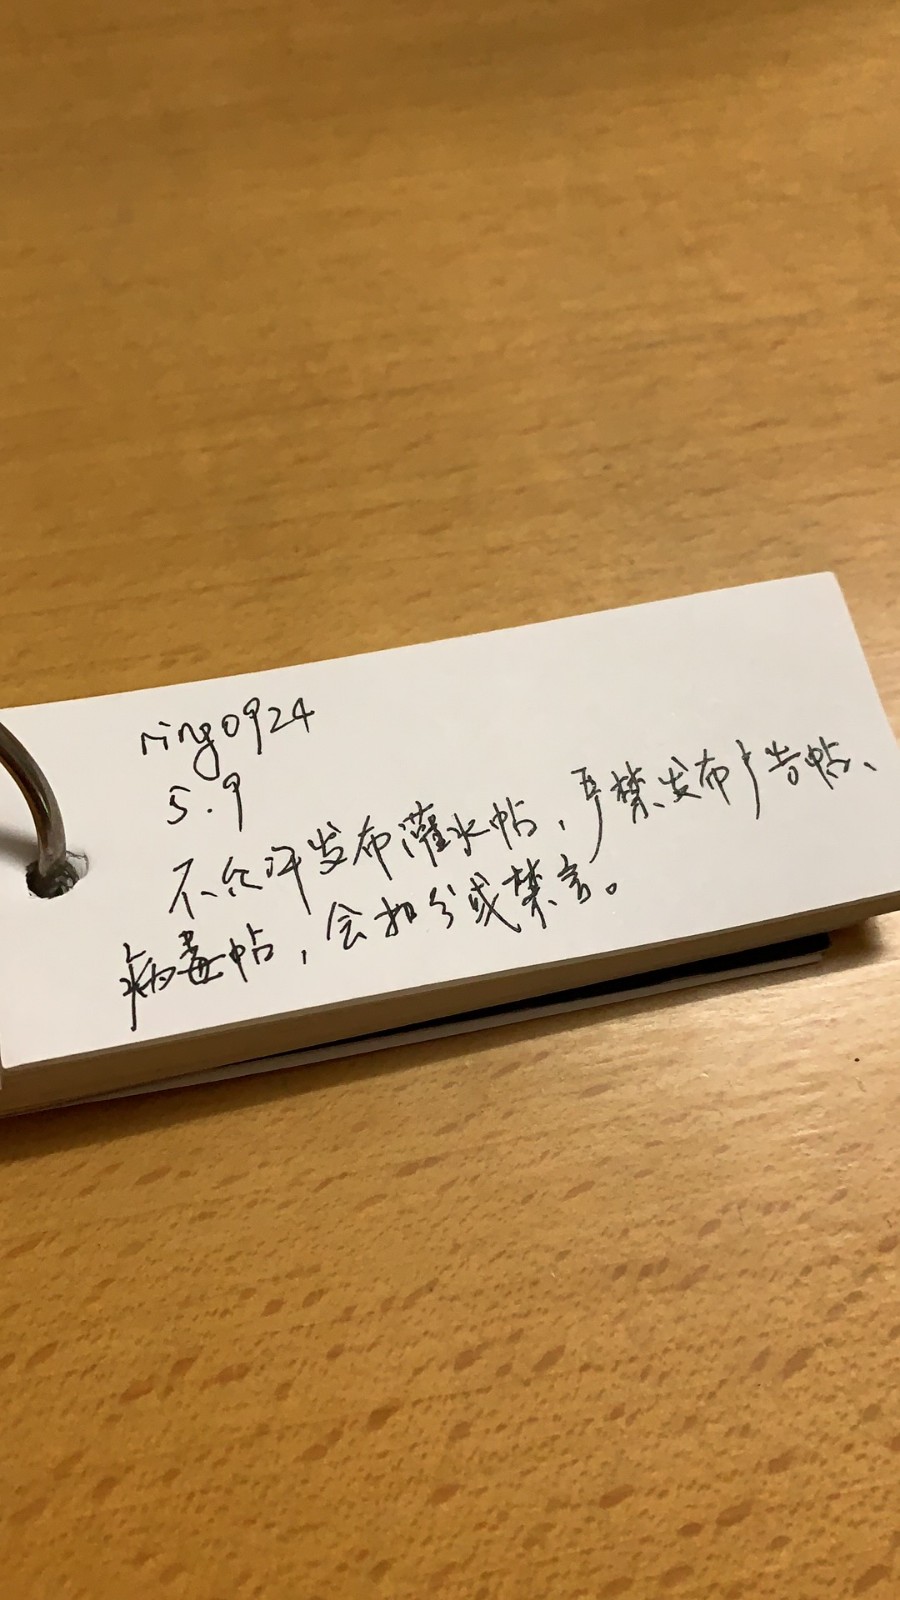 ring0924
5.9
不允许发布灌水帖，严禁发布广告帖、
病毒帖，会扣分或禁言。